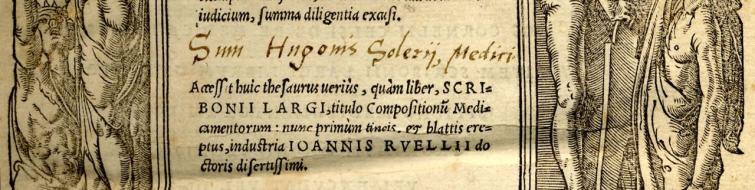 iudicium, summa diligentia excusi.
Sum Hugonis Solerij, Medici.
Accessit huic thesaurus verius, quàm liber, SCRI-
BONII LARGI, titulo Compositionū Medi-
camentorum : nunc primùm tineis, et blattis ere-
ptus, industria IOANNIS RVELLII do
ctoris disertissimi.